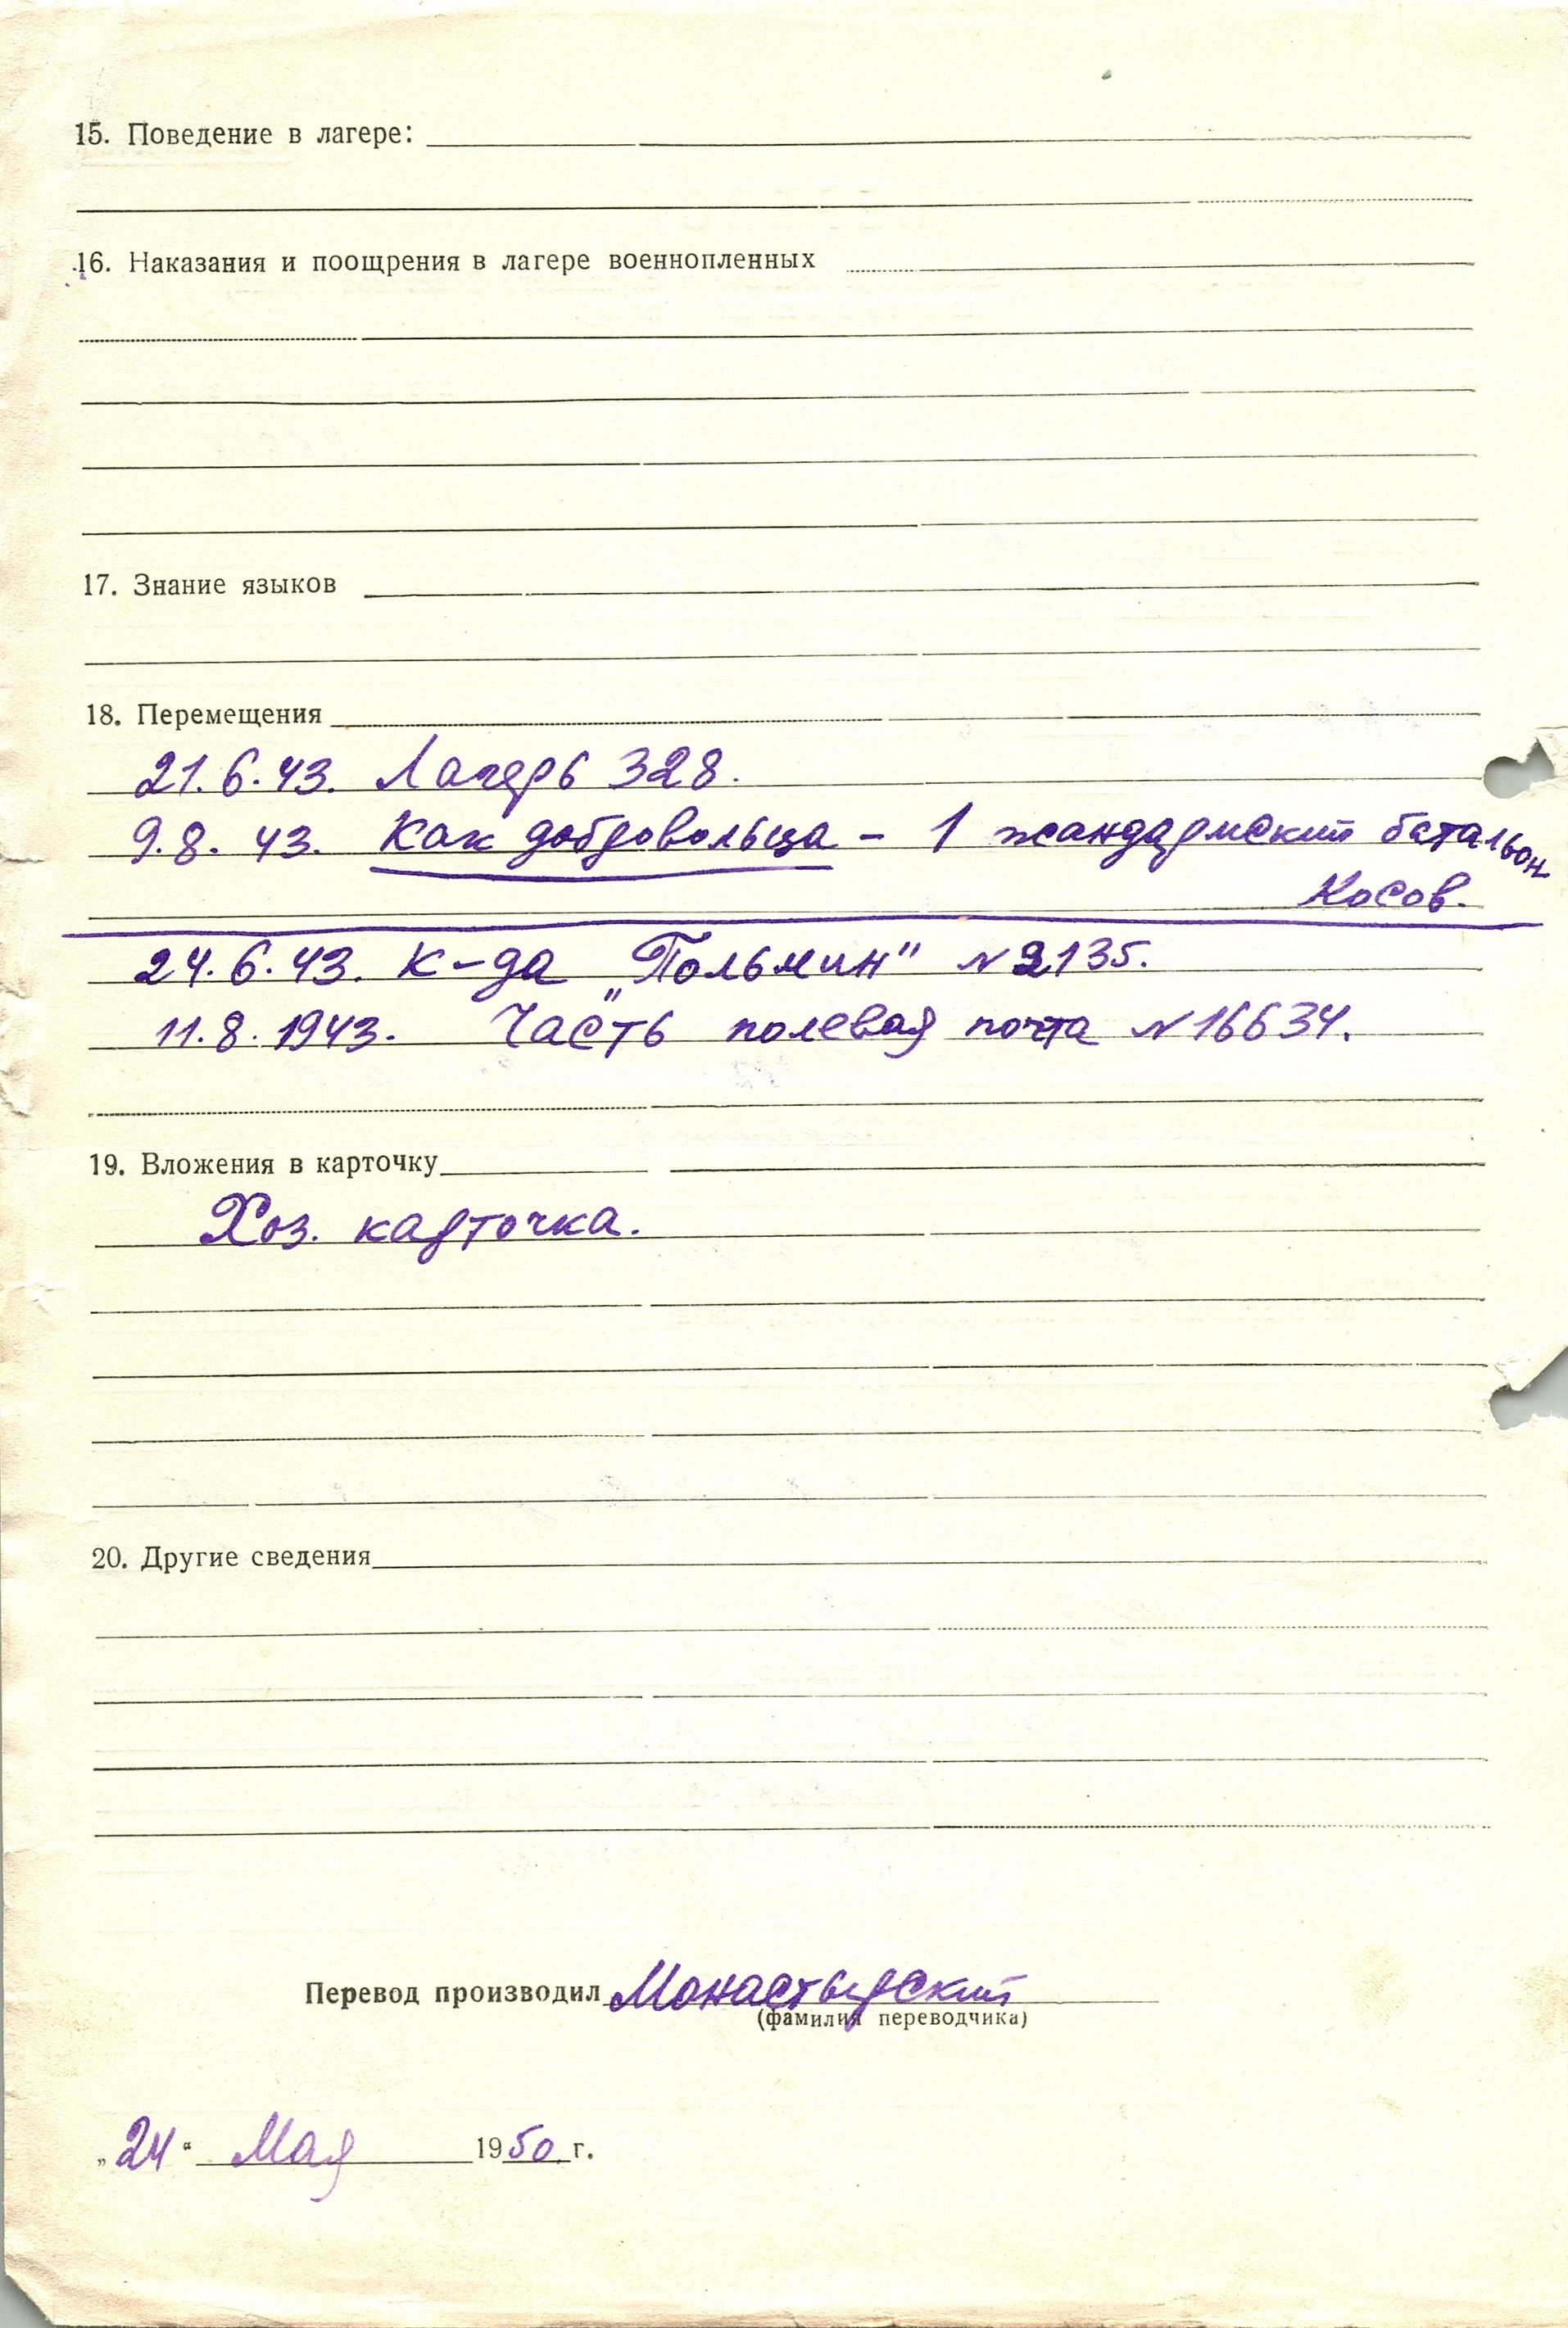 15. Поведение в лагере:
16. Наказания и поощрения в лагере военнопленных
17. Знание языков
18. Перемещения
21.6.43. Лагерь 328.
9.8. 43. Как добровольца – 1 жандармский батальон
Косов.
24.6.43. К-да „Польмин" № 2135.
11.8.1943. Часть полевая почта № 16634.
19. Вложения в карточку
Хоз. карточка.
20. Другие сведения
Перевод производил Монастырский
(фамилия переводчика)
„24“ Мая 1950 г.